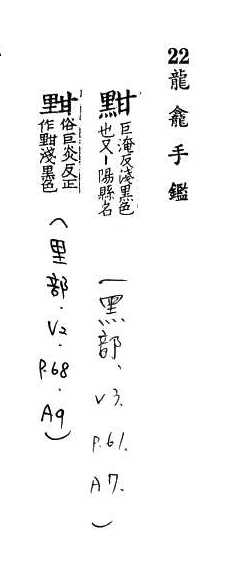 22龍龕手鑑
黚巨淹反淺黑色
也又丨陽縣名
(黑部、V3.P.61.A7.)
俗巨炎反正
作黚淺黑色
(里部.V2.P.68.A9)